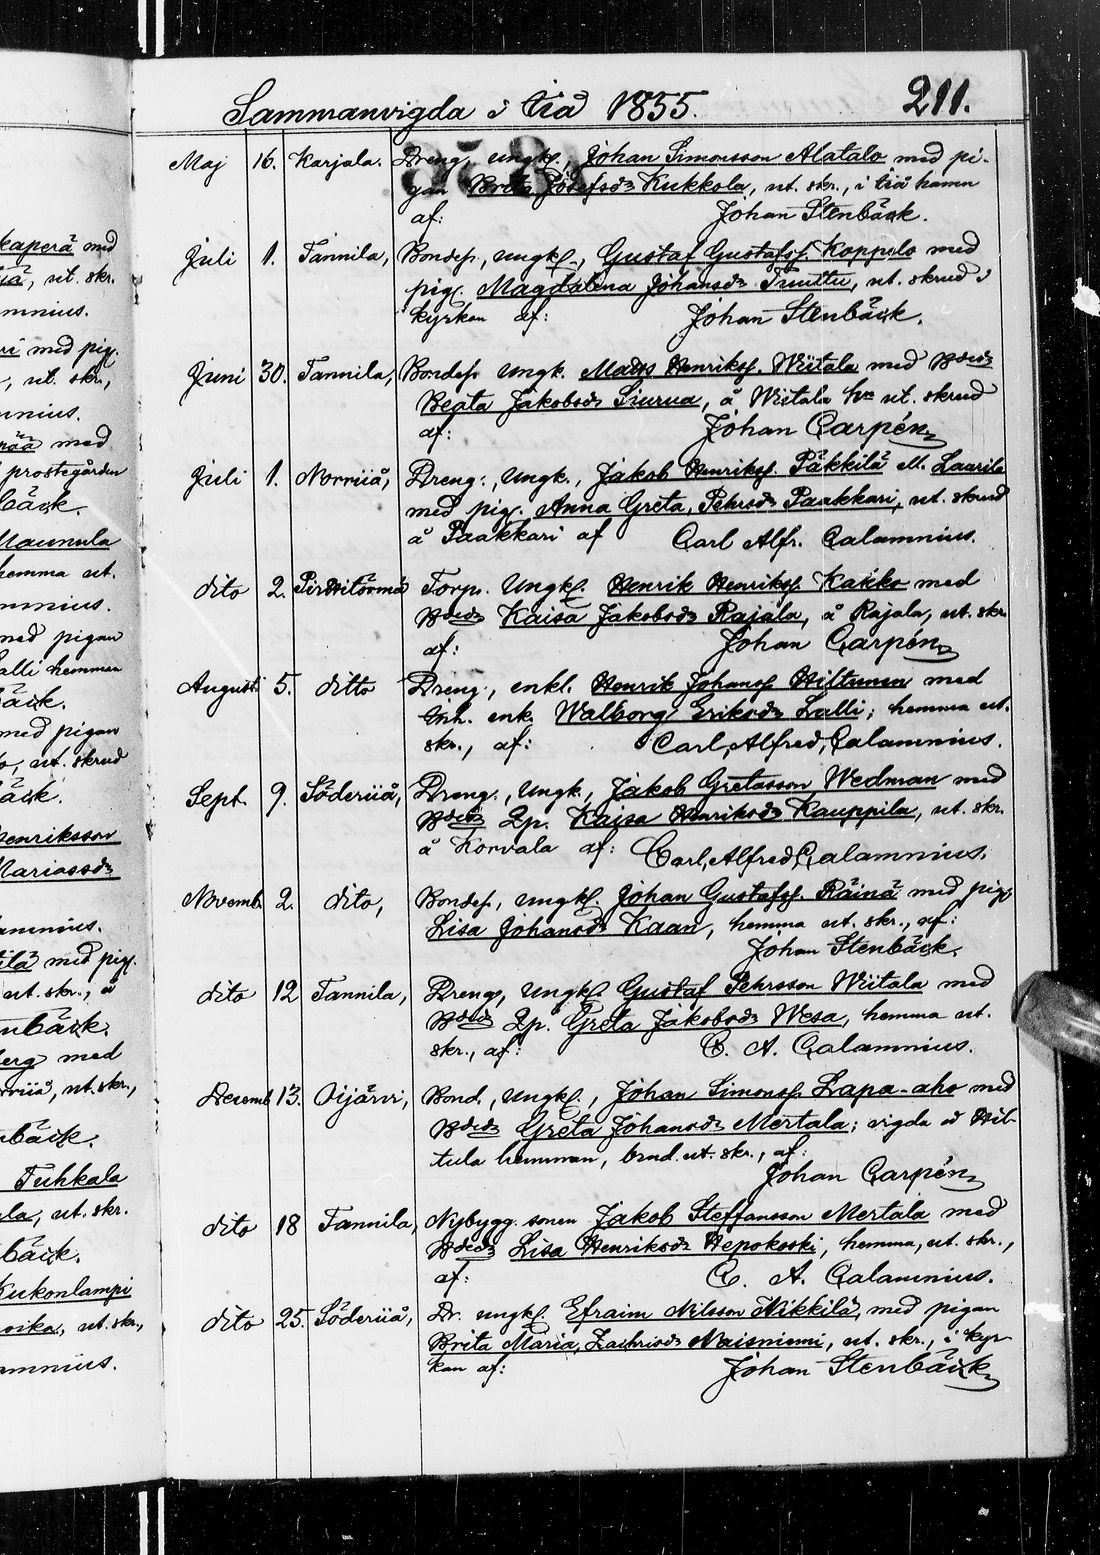 Sammanvigda i Iiå 1855. 211.
Maj 16. Karjala. Dreng, ungkl., Johan Simonsson Alatalo med pi-
gan Brita Josefsdr Kukkola, ut. skr., i Iiå hamn
af: Johan Stenbäck.
Juli 1. Tannila, Bondes., ungkl., Gustaf Gustafss. Koppelo med
pig. Magdalena Johansdr Tuuttu, ut. skrud i
kyrkan af: Johan Stenbäck.
Juni 30. Tannila, Bondes. Ungk. Matts Henrikss. Wiitala med Bdedr
Beata Jakobsdr Siurua, å Wiitala hn ut. skrud
af: Johan Carpén
Juli 1. Norriiå, Dreng., Ungk., Jakob Henrikss. Päkkilä el. Laurila
med pig. Anna Greta, Pehrsdr Paakkari, ut. skrud
å Paakkari af Carl Alfr. Calamnius.
dito 2. Torp. Ungkl. Henrik Henrikss. Kakko med
Bdedr Kaisa Jakobsdr Rajala, å Rajala, ut. skr.
af: Johan Carpén
Augusti 5. ditto Dreng., enkl. Henrik Johanss. Hiltunen med
Inh. enk. Walborg Eriksdr Lalli; hemma ut.
skr., af: Carl, Alfred, Calamnius.
Sept. 9. Söderiiå, Dreng., Ungk., Jakob Gretasson Wedman med
Bdedr Kaisa Henriksdr Kauppila, ut. skr.
å Korvala af: Carl, Alfred, Calamnius.
Novemb. 2. dito, Bondes., ungkl. Johan Gustafss. Räinä med pig.
Lisa Johansdr Kaan, hemma ut. skr., af:
Johan Stenbäck.
dito 12 Tannila, Dreng, Ungkl. Gustaf Pehrsson Wiitala med
Bdedr Greta Jakobsdr Wesa, hemma ut.
skr., af: C. A. Calamnius.
Decemb. 13. Oijärvi, Bond., Ungkl., Johan Simonss. Lapa-aho med
Bdedr Greta Johansdr Mertala; vigda å
tula hemman, brud. ut. skr., af:
Johan Carpén
dito 18 Tannila, Nybygg. sonen Jakob Steffansson Mertala med
Bdedr Lisa Henriksdr Hepokoski, hemma, ut. skr.,
af: C. A. Calamnius.
dito 25. Söderiiå, Dr. ungkl. Efraim Nilsson Nikkilä, med pigan
Brita Maria, Zachrisdr Naisniemi, ut. skr., i kyr-
kan af: Johan Stenbäck